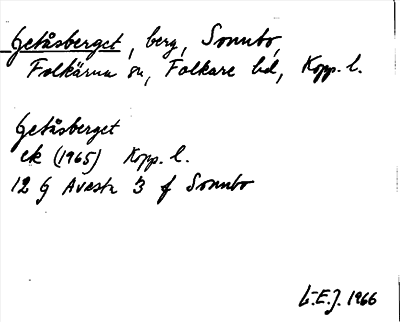 Getåsberget, berg, Sonnbo,
Folkärna sn, Folkare hd, Kopp. l.
Getåsberget
ek (1965) Kopp. l.
12 G Avesta 3 f Sonnbo
L-E.J. 1966